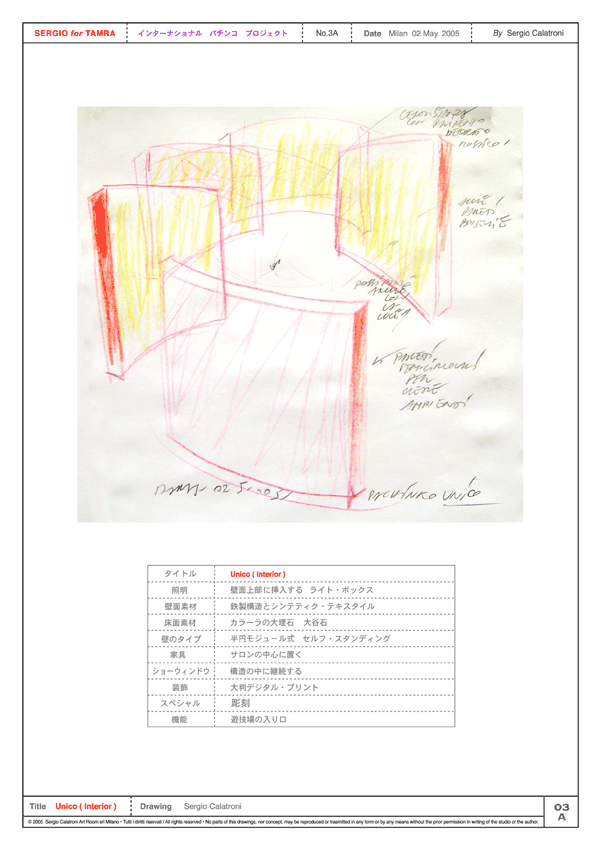 SERGIO for TAMRA
インターナショナル パチンコ プロジェクト
No.3A
Date Milan 02 May. 2005
By Sergio Calatroni
PARETI
PER
AMBIENTI
02 5
PACHINKO UNICO
タイトル Unico ( Interior )
照明 壁面上部に挿入する ライト・ボックス
壁面素材 鉄製構造とシンテティク・テキスタイル
床面素材 カラーラの大理石 大谷石
壁のタイプ 半円モジュール式 セルフ・スタンディング
家具 サロンの中心に置く
ショーウィンドウ 構造の中に継続する
装飾 大判デジタル・プリント
スペシャル 彫刻
機能 遊技場の入り口
Title Unico ( Interior )
Drawing Sergio Calatroni
03
A
© 2005 Sergio Calatroni Art Room srl Milano • Tutti i diritti riservati / All rights reserved • No parts of this drawings, nor concept. may be reproduced or trasmitted in any form or by any means without the prior permission in writing of the studio or the author.